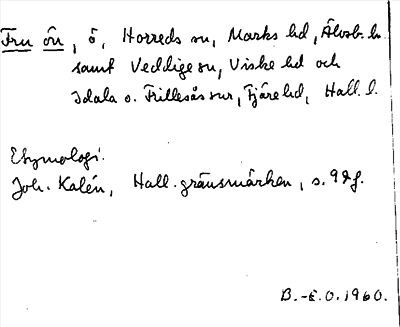 Fru ön, ö, Horreds sn, Marks hd, Älvsb. l.
samt Veddige sn, Viske hd och
Idala o. Frillesås snr, Fjäre hd, Hall. l.
Etymologi.
Joh. Kalén, Hall. gränsmärken, s. 9 ff.
B.-E.O. 1960.